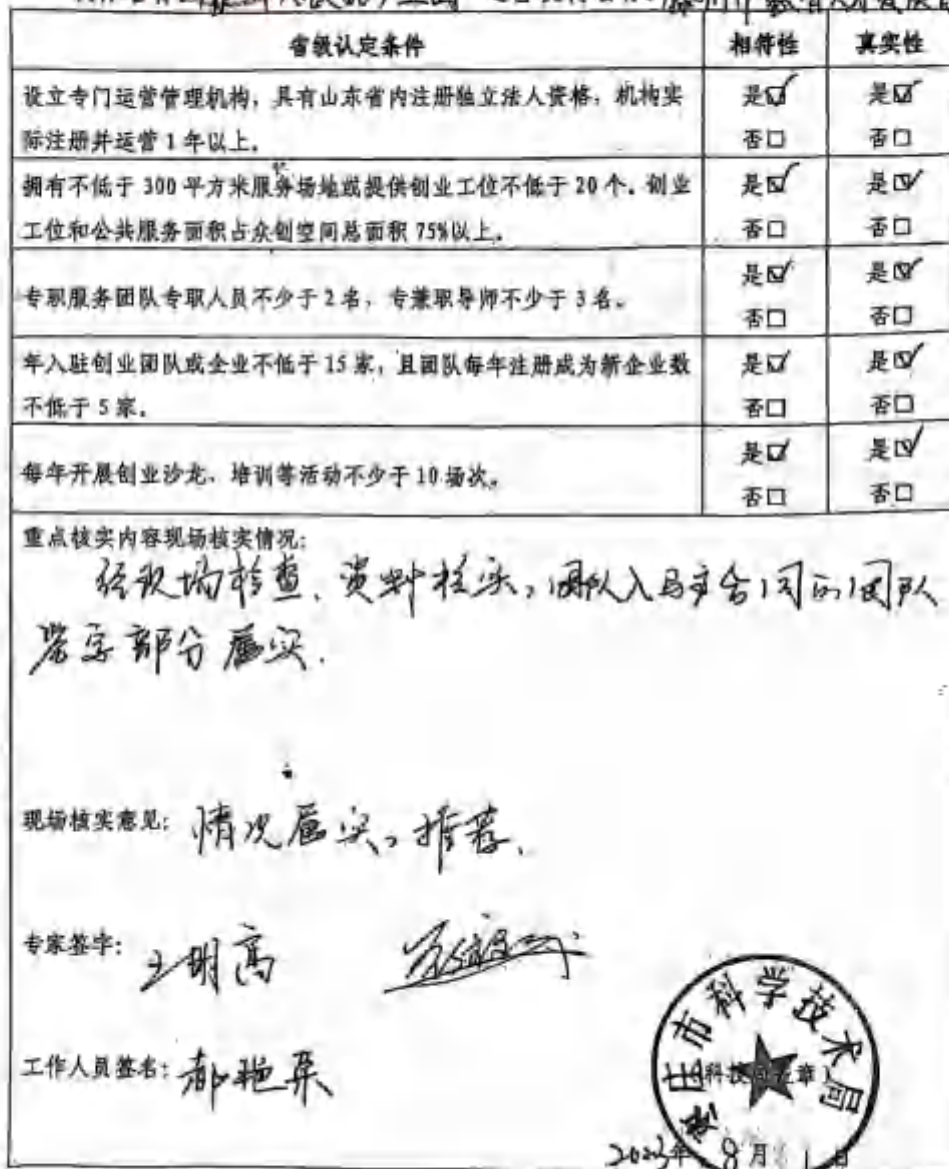 省级认定条件 相符性 真实性
设立专门运营管理机构，具有山东省内注册独立法人资格，机构实 是☑ 是☑
际注册并运营1年以上。 否□ 否□
拥有不低于300平方米服务场地或提供创业工位不低于20个。创业 是☑ 是☑
工位和公共服务面积占众创空间总面积75%以上。 否□ 否□
专职服务团队专职人员不少于2名，专兼职导师不少于3名。 是☑ 是☑
否□ 否□
年入驻创业团队或企业不低于15家，且团队每年注册成为新企业数 是☑ 是☑
不低于5家。 否□ 否□
每年开展创业沙龙、培训等活动不少于10场次。 是☑ 是☑
否□ 否□
重点核实内容现场核实情况：
经现场检查、资料核实，团队入驻合同的团队
签字部分属实.
现场核实意见：情况属实，推荐.
专家签字：王明高
工作人员签名：郝艳
枣庄市科学技术局
2023年 月 日